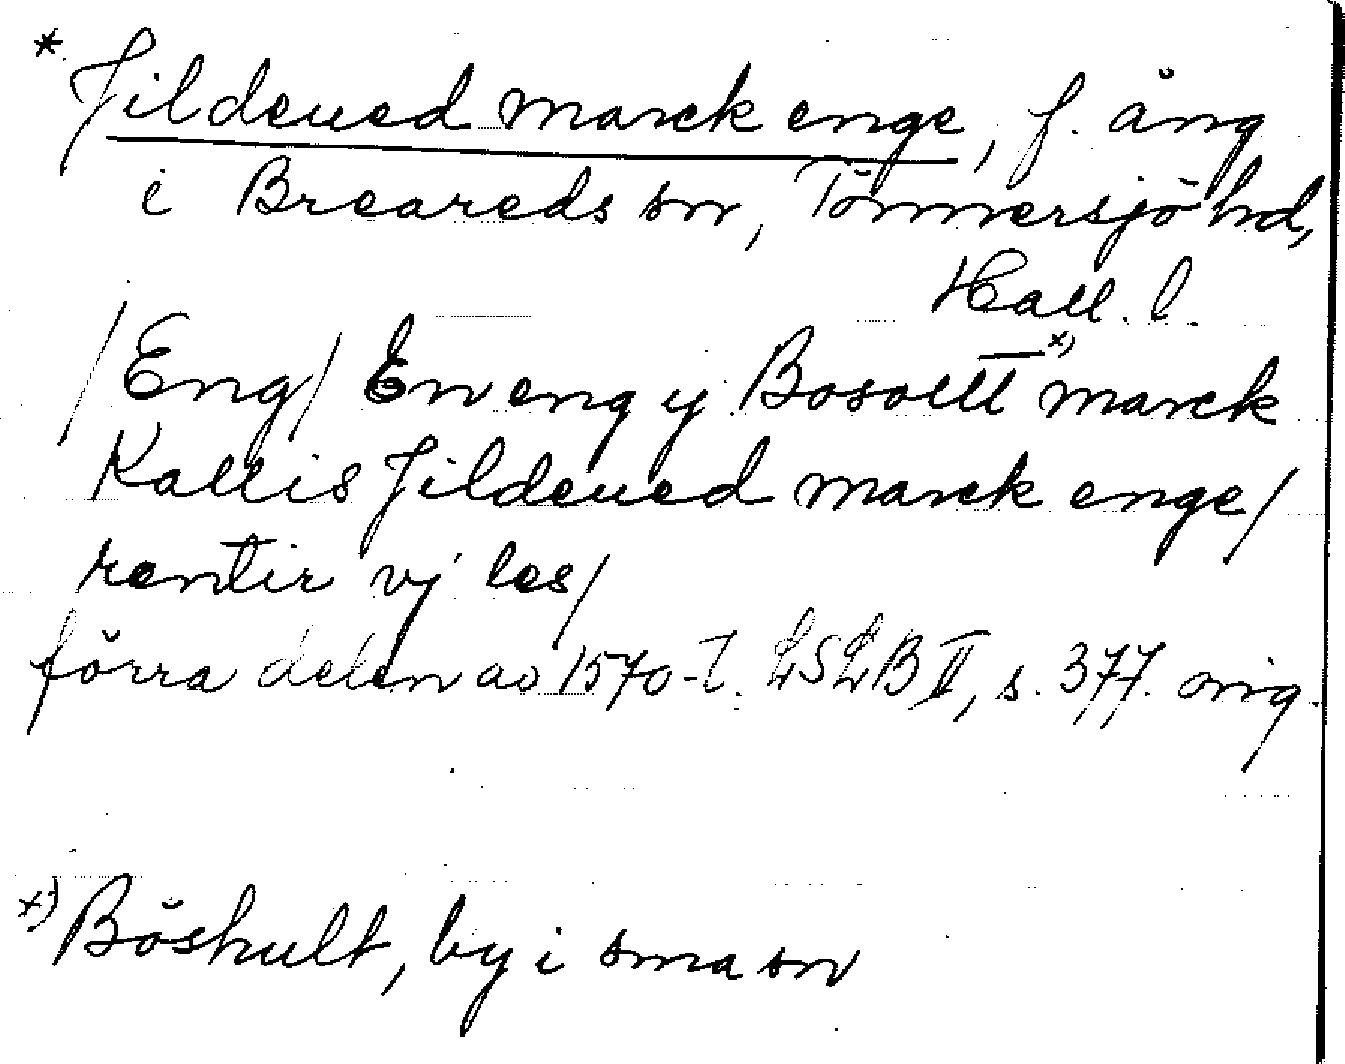 * Jildeued marck enge, f. äng
i Breareds sn, Tönnersjö hd,
Hall. l.
/Eng/ En eng y Bosoltt x) marck
Kallis Jildeued marck enge/
rentir vj les/
förra delen av 1570-t. LSLB II, s. 377. orig.
x) Böshult, by i sma sn